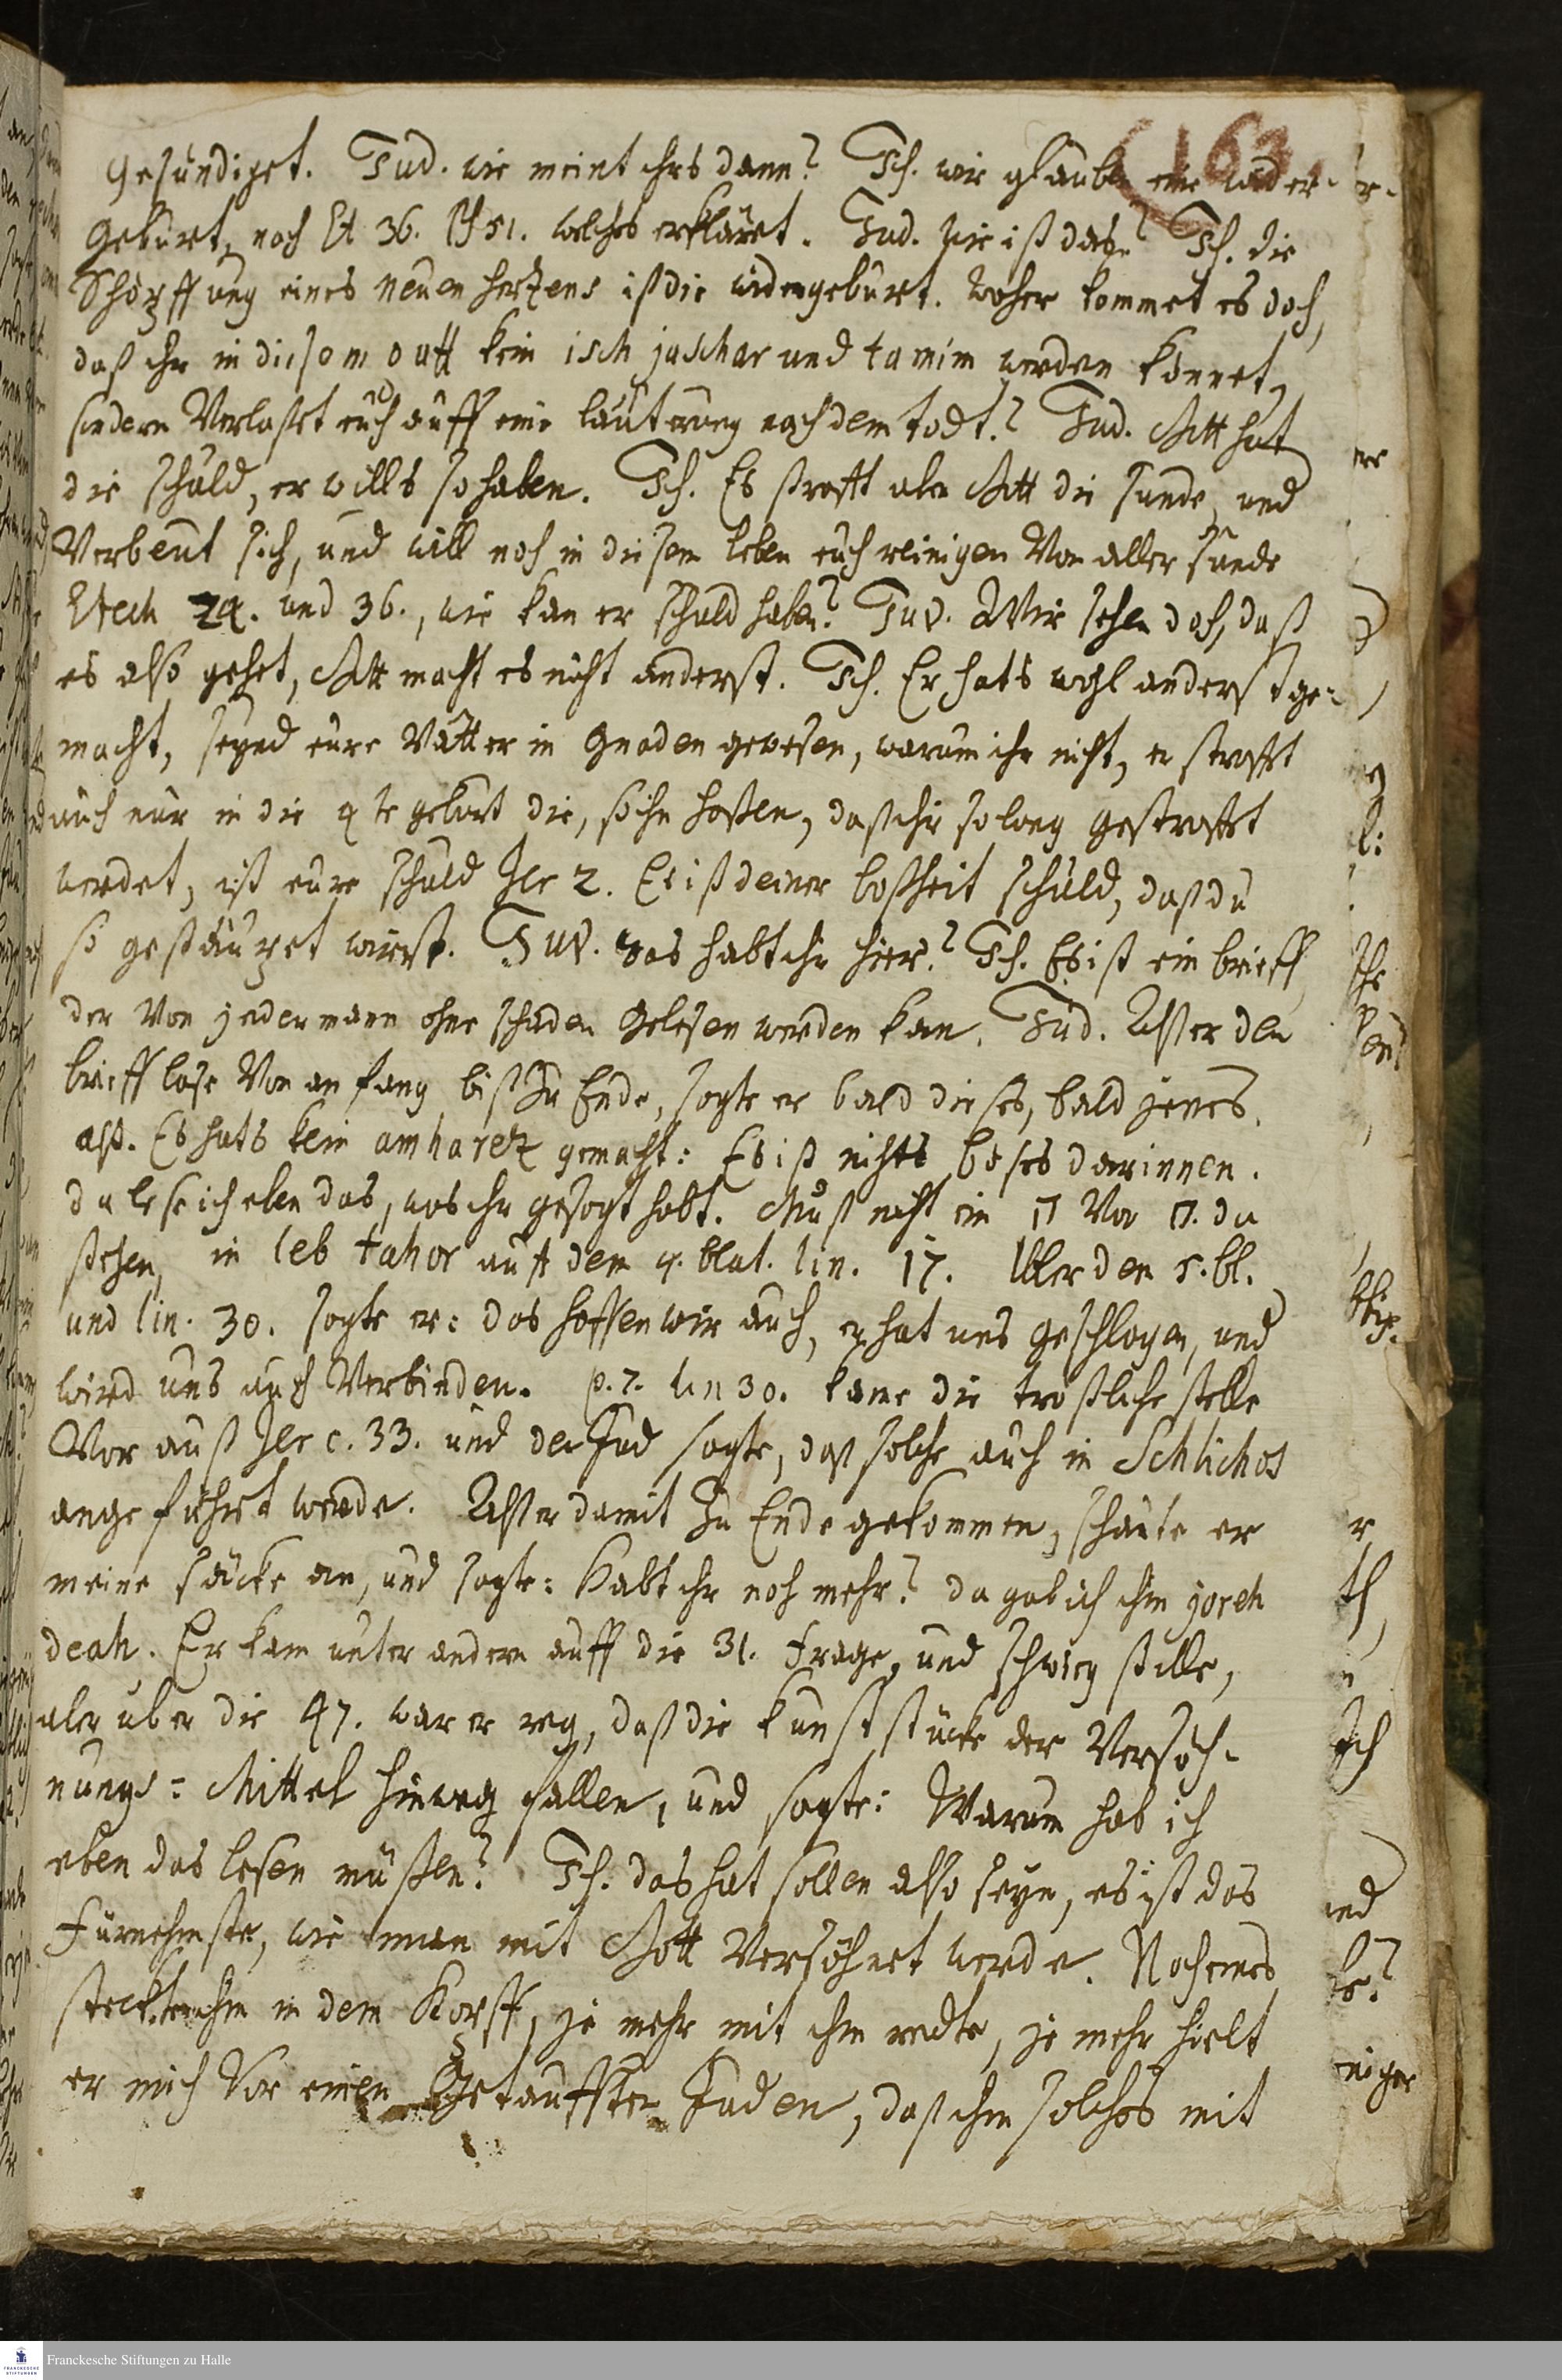 163.
gesündiget. Jud. wie meint ihrs dann? Ich. wir glauben eine wider-
geburt, nach Ez 36. Ps 51. welches erkläret. Jud. wie ist das? Ich. die
Schöpffung eines neuen hertzens ist die widergeburt. woher kommet es doch,
daß ihr in diesem outt kein isch jaschar und tamim werden könnet,
sondern Verlaßet euch auff eine läuterung nach dem todt? Jud. Gott hat
die schuld, er wills so haben. Ich. Es strafft aber Gott die sünde, und
Verbeut sich, und will noch in diesem leben euch reinigen Von aller sünde
Ezech 24. und 36., wie kan er schuld haben? Jud. Wir sehen doch, daß
es also gehet, Gott macht es nicht anderst. Ich. Er hats wohl anderst ge-
macht, seynd eure Vätter in Gnaden gewesen, warum ihr nicht, er straffet
auch nur in die 4te geburt die, so ihn haßen, daß ihr so lang gestraffet
werdet, ist eure schuld Jer 2. Es ist deiner boßheit schuld, daß du
so gestäupet wirst. Jud. was habt ihr hier? Ich. Es ist ein brieff,
der Von jedermann ohne schaden gelesen werden kan. Jud. Als er den
brieff lase Von anfang biß zu Ende, sagte er bald dieses, bald jenes,
als. Es hats kein amharez gemacht: Es ist nichts böses darinnen.
da lese ich eben das, was ihr gesagt habt. Muß nicht ein ה Vor ה. da
stehen, in leb tahor auff dem 4. blat. lin. 17. Uber den 5. bl.
und lin. 30. sagte er: das hoffen wir auch, er hat uns geschlagen, und
wird uns auch Verbinden. p. 7. lin 30. kame die tröstliche stelle
Vor auß Jer c. 33. und der Jud sagte, daß solche auch in Schlichos
angeführt werde. Als er damit zu Ende gekommen, schaute er
meine säcke an, und sagte: Habt ihr noch mehr? da gab ich ihm joreh
deah. Er kam unter andern auff die 31. Frage, und schwieg stille,
aber über die 47. war er reg, daß die kunststücke der Versöh-
nungs-Mittel hinweg fallen, und sagte: Warum hab ich
eben das lesen müßen? Ich. das hat sollen also seyn, es ist das
Fürnehmste, wie man mit Gott Versöhnet werde. Noch eines
steckte ihm in dem Kopff, je mehr mit ihm redte, je mehr hielt
er mich Vor einen Getaufften Juden, daß ihm solches mit
Franckesche Stiftungen zu Halle